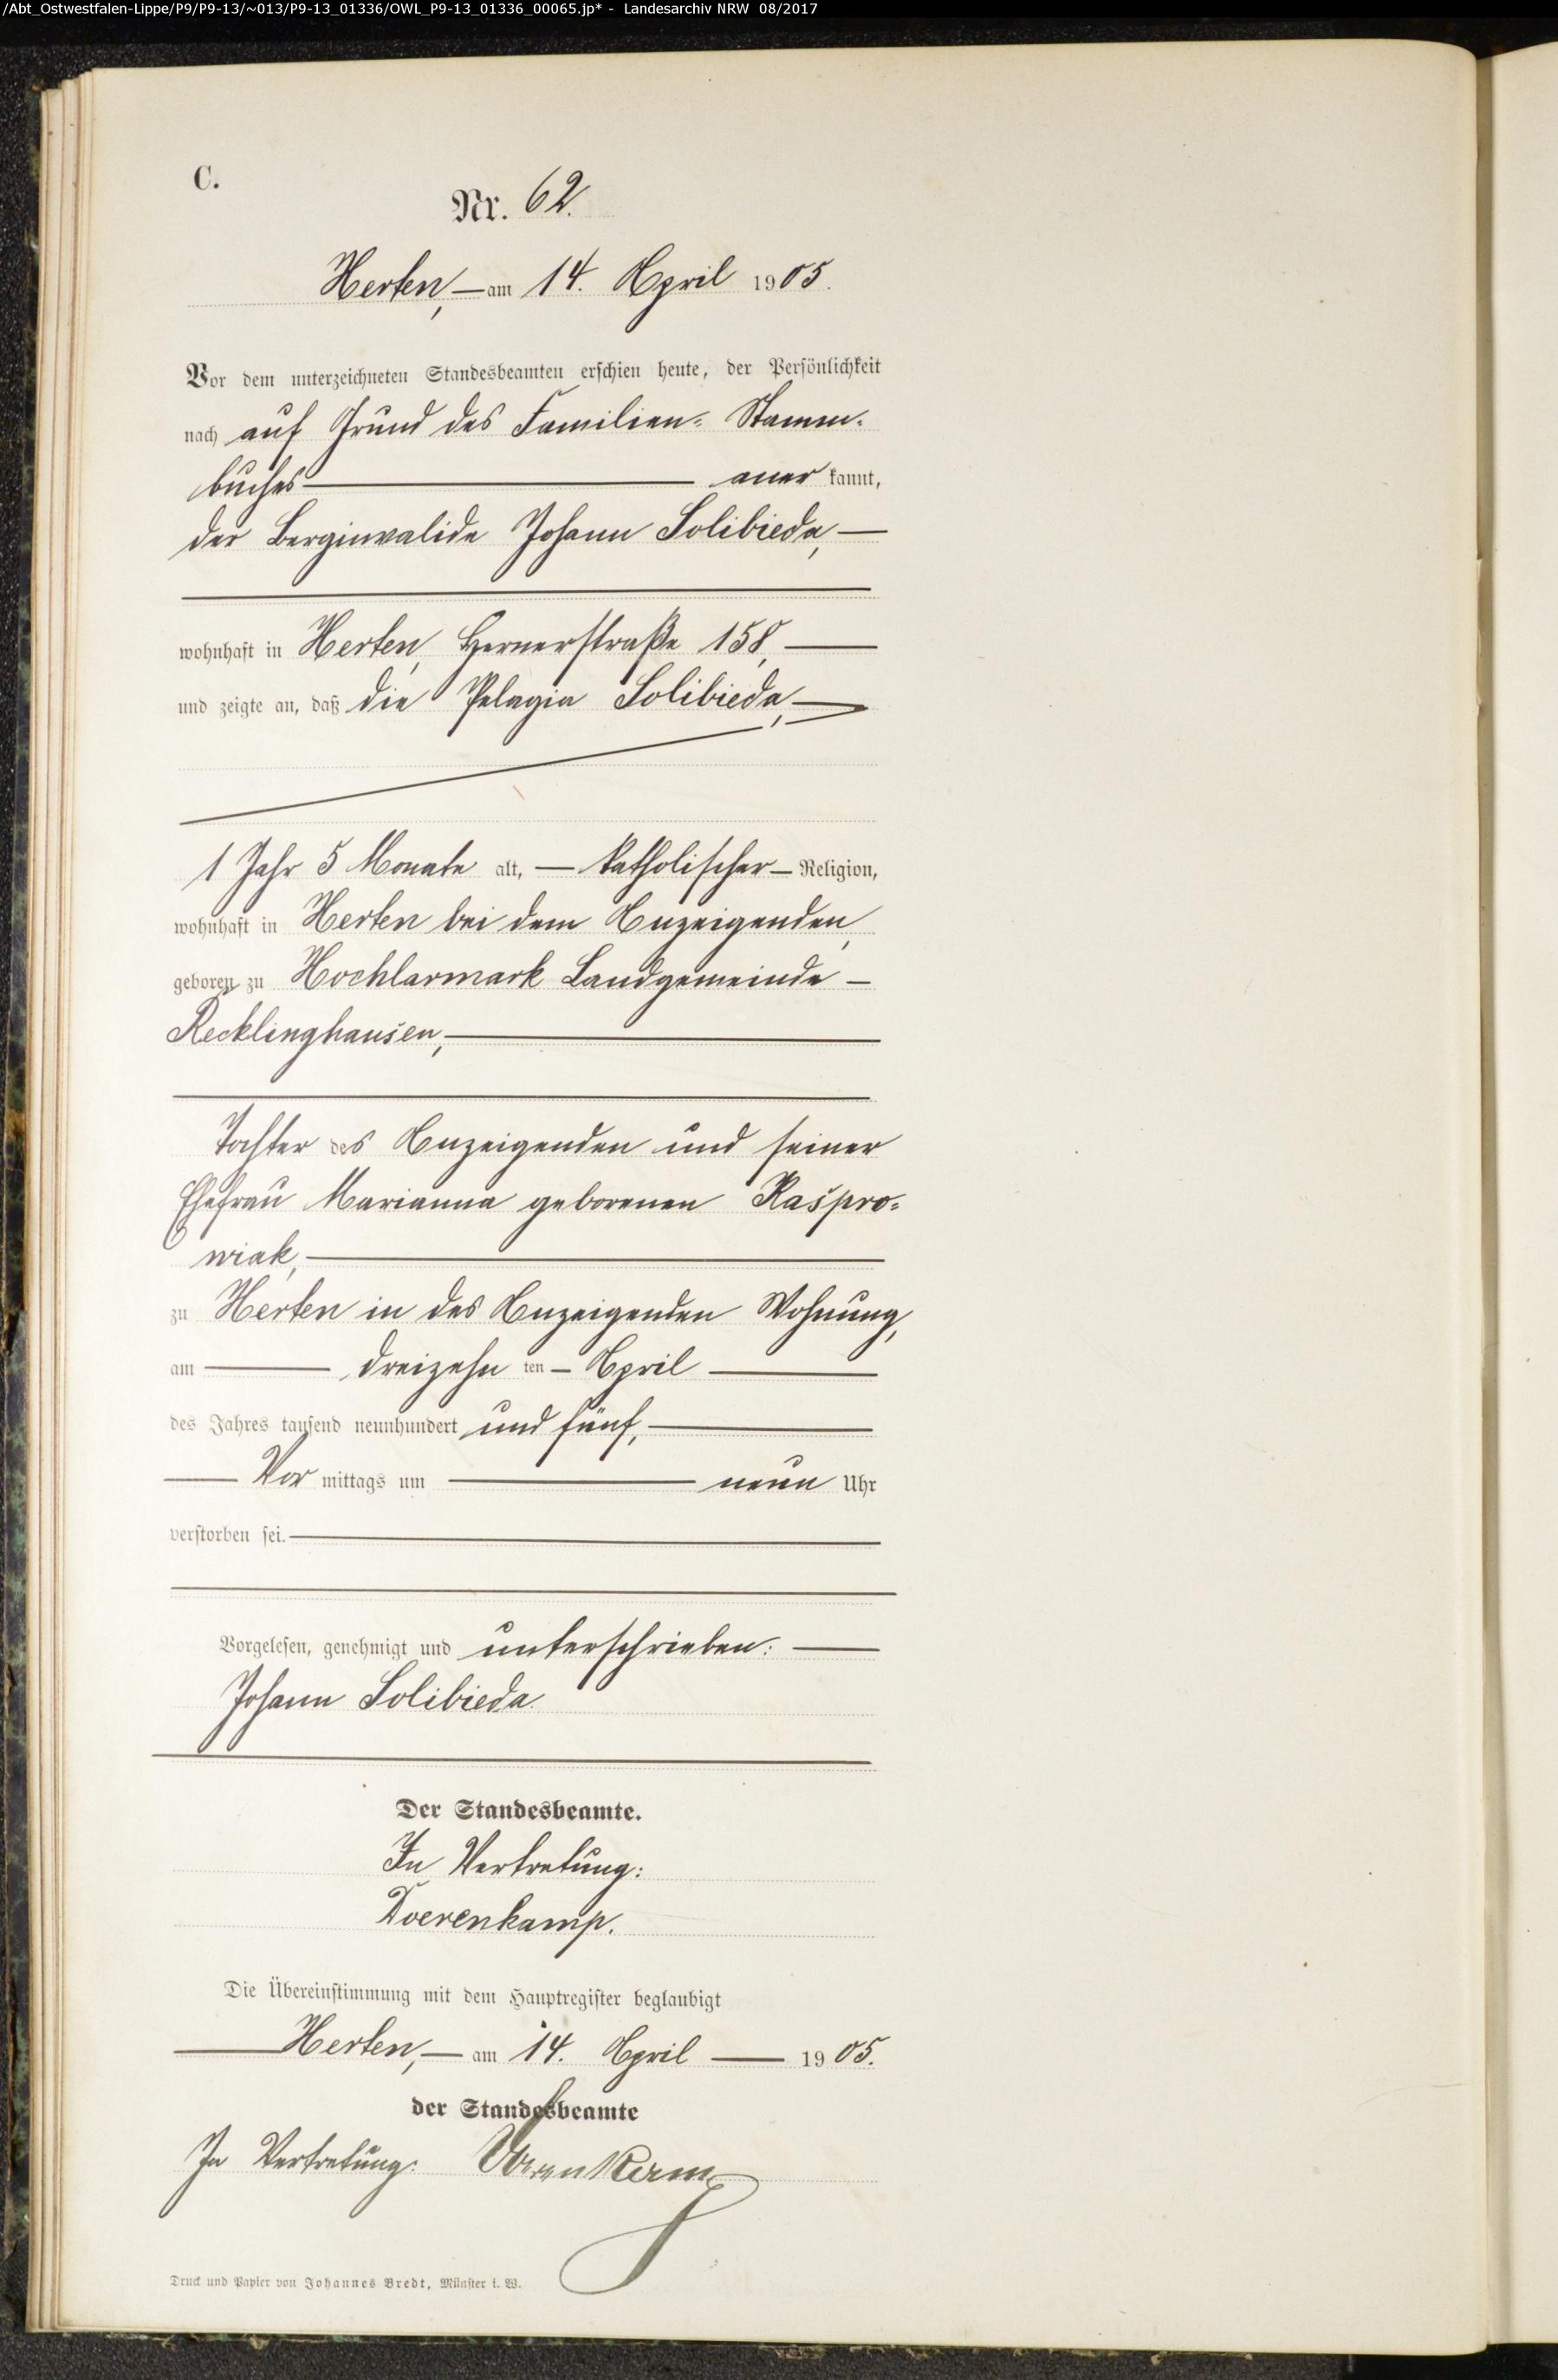 /Abt_Ostwestfalen-Lippe/P9/P9-13/~013/P9-13_01336/OWL_P9-13_01336_00065.jp* - Landesarchiv NRW 08/2017
C.
Nr. 62.
Herten, am 14. April 1905.
Vor dem unterzeichneten Standesbeamten erschien heute, der Persönlichkeit
nach auf Grund des Familien- Stamm-
buches anerkannt,
der Berginvalide Johann Solibieda,
wohnhaft in Herten, Hernerstraße 158,
und zeigte an, daß die Pelagia Solibieda,
1 Jahr 5 Monate alt, katholischer Religion,
wohnhaft in Herten bei dem Anzeigenden,
geboren zu Hochlarmark Landgemeinde
Recklinghausen,
Tochter des Anzeigenden und seiner
Ehefrau Marianna geborenen Kaspro-
wiak,
zu Herten in des Anzeigenden Wohnung,
am dreizehn ten April
des Jahres tausend neunhundert und fünf,
Vor mittags um neun Uhr
verstorben sei.
Vorgelesen, genehmigt und unterschrieben:
Johann Solibieda.
Der Standesbeamte.
In Vertretung:
Doerenkamp.
Die Übereinstimmung mit dem Hauptregister beglaubigt
Herten, am 14. April 1905.
der Standesbeamte
In Vertretung: Doerenkamp
Druck und Papier von Johannes Bredt, Münster i. W.